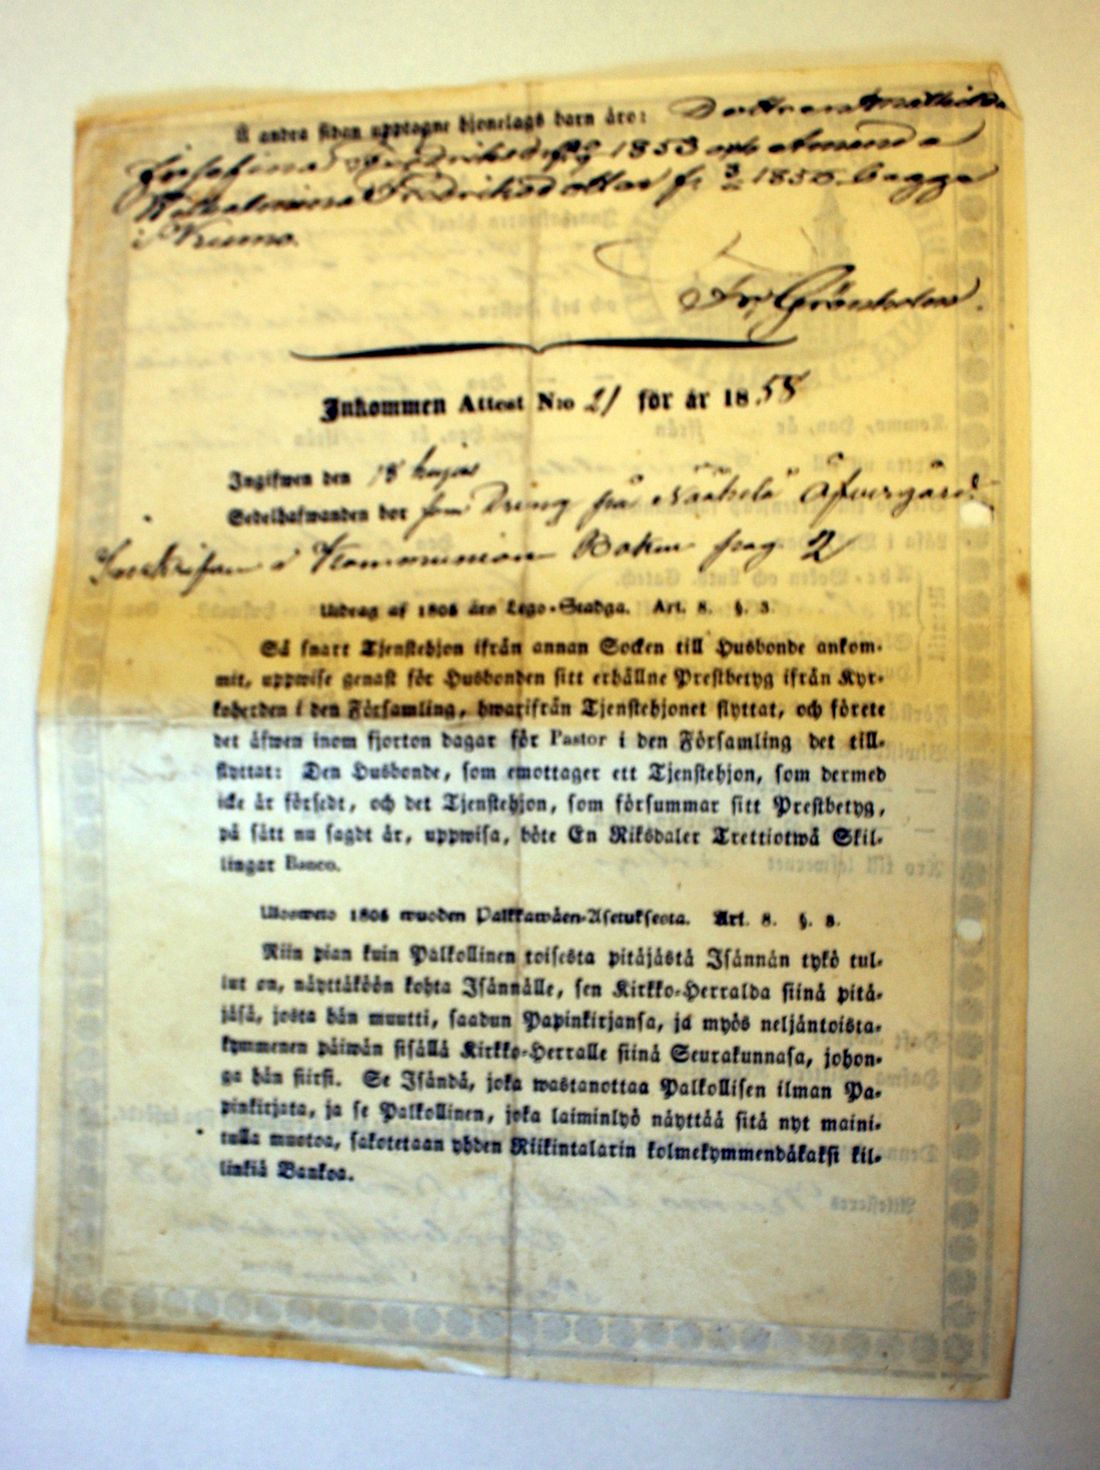 Å andra sidan upptagne hjonelags barn äro: Döttrarne Mathilda
Josefina Fredriksdotter 1853 och Amanda
Wilhelmina Fredriksdotter f. 1858. bagge
i Nummo.
Fr. Grönholm.
Inkommen Attest N:o 21 för år 1858
Ingifwen den 18 hujus
Sedelhafwanden bor som Dräng på Näähelä Öfvergård.
i Kommunion Boken pag. 2
Utdrag af 1805 års Lego-Stadga. Art. 8. §. 3.
Så snart Tjenstehjon ifrån annan Socken till Husbonde ankom-
mit, uppwise genast för Husbonden sitt erhållne Prestbetyg ifrån Kyr-
koherden i den Församling, hwarifrån Tjenstehjonet flyttat, och förete
det äfwen inom fjorton dagar för Pastor i den Församling det till-
flyttat: Den Husbonde, som emottager ett Tjenstehjon, som dermed
icke är försedt, och det Tjenstehjon, som försummar sitt Prestbetyg,
på sätt nu sagdt är, uppwisa, böte En Riksdaler Trettiotwå Skil-
lingar Banco.
Ulosweto 1805 wuoden Palkkawäen-Asetuksesta. Art. 8. §. 3.
Niin pian kuin Palkollinen toisesta pitäjästä Isännän tykö tul-
lut on, näyttäköön kohta Isännälle, sen Kirkko-Herralda siinä pitä-
jäsä, josta hän muutti, saadun Papinkirjansa, ja myös neljäntoista-
kymmenen päiwän sisällä Kirkko-Herralle siinä Seurakunnasa, johon-
ga hän siirsi. Se Isändä, joka wastanottaa Palkollisen ilman Pa-
pinkirjata, ja se Palkollinen, joka laiminlyö näyttää sitä nyt maini-
tulla muotoa, sakotetaan yhden Riikintalarin kolmekymmendäkaksi kil-
linkiä Bankoa.